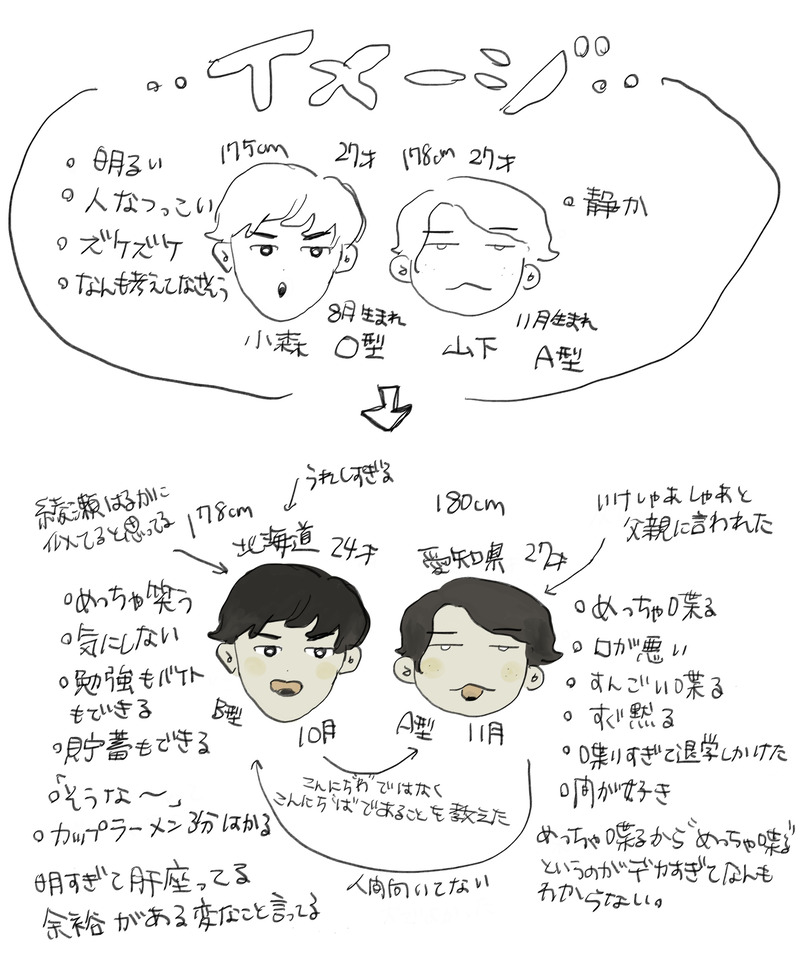 イメージ
・明るい
・人なつっこい
・ズケズケ
・なんも考えてなさそう
175cm 27才
178cm 27才
・静か
8月生まれ
小森 O型
11月生まれ
山下 A型
うれしすぎる
綾瀬はるかに
似てると思ってる
178cm
北海道 24才
180cm
愛知県 27才
いけしゃあしゃあと
父親に言われた
・めっちゃ笑う
・気にしない
・勉強もバイト
もできる
・貯蓄もできる
・「そうな〜」
・カップラーメン3分はかる
明すぎて肝座ってる
余裕がある変なこと言ってる
B型
10月
A型 11月
こんにち"わ"ではなく
こんにち"ば"であることを教えた
人間向いてない
・めっちゃ喋る
・口が悪い
・すんごい喋る
・すぐ黙る
・喋りすぎて退学しかけた
・肉が好き
めっちゃ喋るから"めっちゃ喋る"
というのがデカすぎてなんも
わからない。